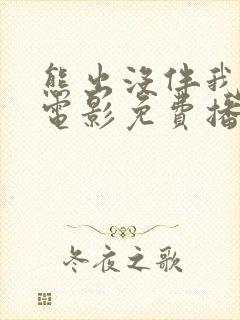 熊出没伴我
电影免費播
冬夜之歌